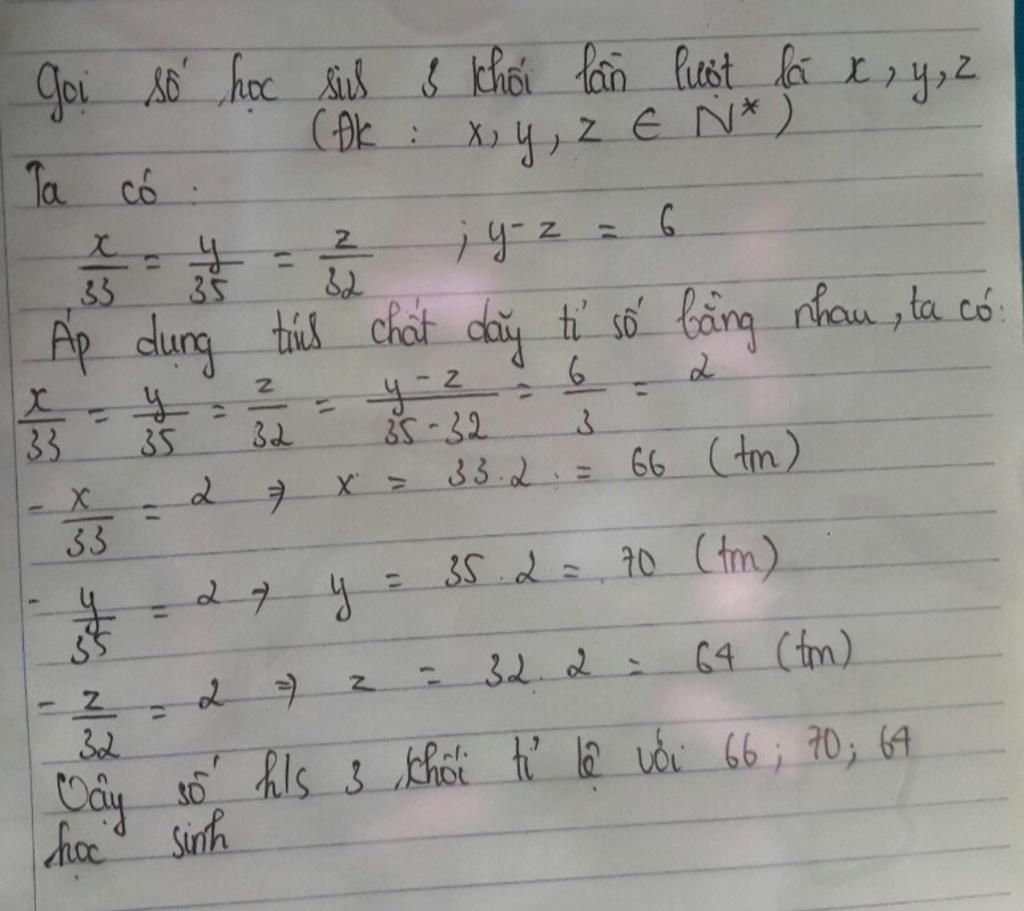 Gọi số học sinh 3 khối lần lượt là x, y, z
(ĐK : x, y, z ∈ N*)
Ta có :
x/33 = y/35 = z/32 ; y - z = 6
Áp dụng tính chất dãy tỉ số bằng nhau, ta có:
x/33 = y/35 = z/32 = (y - z)/(35 - 32) = 6/3 = 2
- x/33 = 2 ⇒ x = 33.2 = 66 (tm)
- y/35 = 2 ⇒ y = 35.2 = 70 (tm)
- z/32 = 2 ⇒ z = 32.2 = 64 (tm)
Vậy số h/s 3 khối tỉ lệ với 66; 70; 64
học sinh